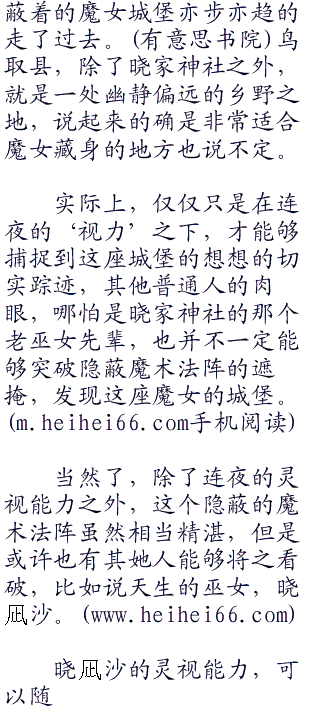 蔽着的魔女城堡亦步亦趋的
走了过去。(有意思书院)鸟
取县，除了晓家神社之外，
就是一处幽静偏远的乡野之
地，说起来的确是非常适合
魔女藏身的地方也说不定。
实际上，仅仅只是在连
夜的‘视力’之下，才能够
捕捉到这座城堡的想想的切
实踪迹，其他普通人的肉
眼，哪怕是晓家神社的那个
老巫女先辈，也并不一定能
够突破隐蔽魔术法阵的遮
掩，发现这座魔女的城堡。
(m.heihei66.com手机阅读)
当然了，除了连夜的灵
视能力之外，这个隐蔽的魔
术法阵虽然相当精湛，但是
或许也有其她人能够将之看
破，比如说天生的巫女，晓
凪沙。(www.heihei66.com)
晓凪沙的灵视能力，可
以随